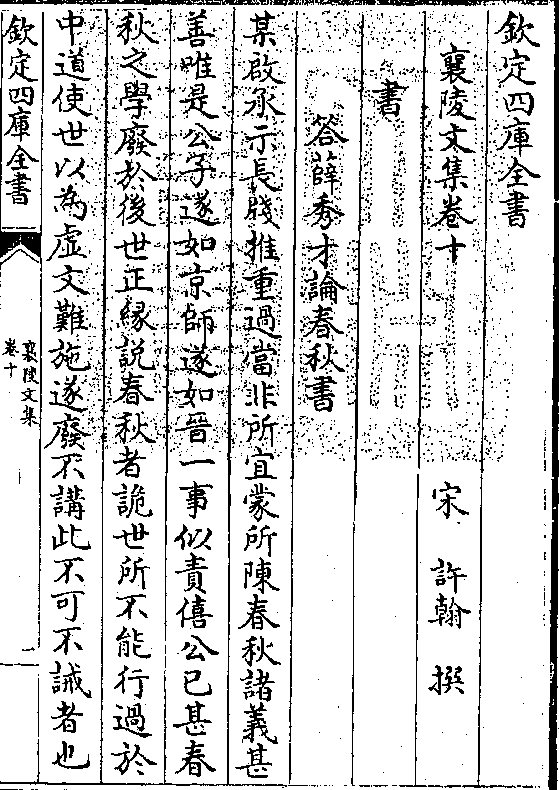 欽定四庫全書
襄陵文集卷十
宋　許翰　撰
書
答薛秀才論春秋書
某啟承示長牋推重過當非所宜蒙所陳春秋諸義甚
善唯是公子遂如京師遂如晉一事似責僖公已甚春
秋之學廢於後世正緣說春秋者詭世所不能行過於
中道使世以為虚文難施遂廢不講此不可不誡者也
欽定四庫全書
襄陵文集
卷十
一